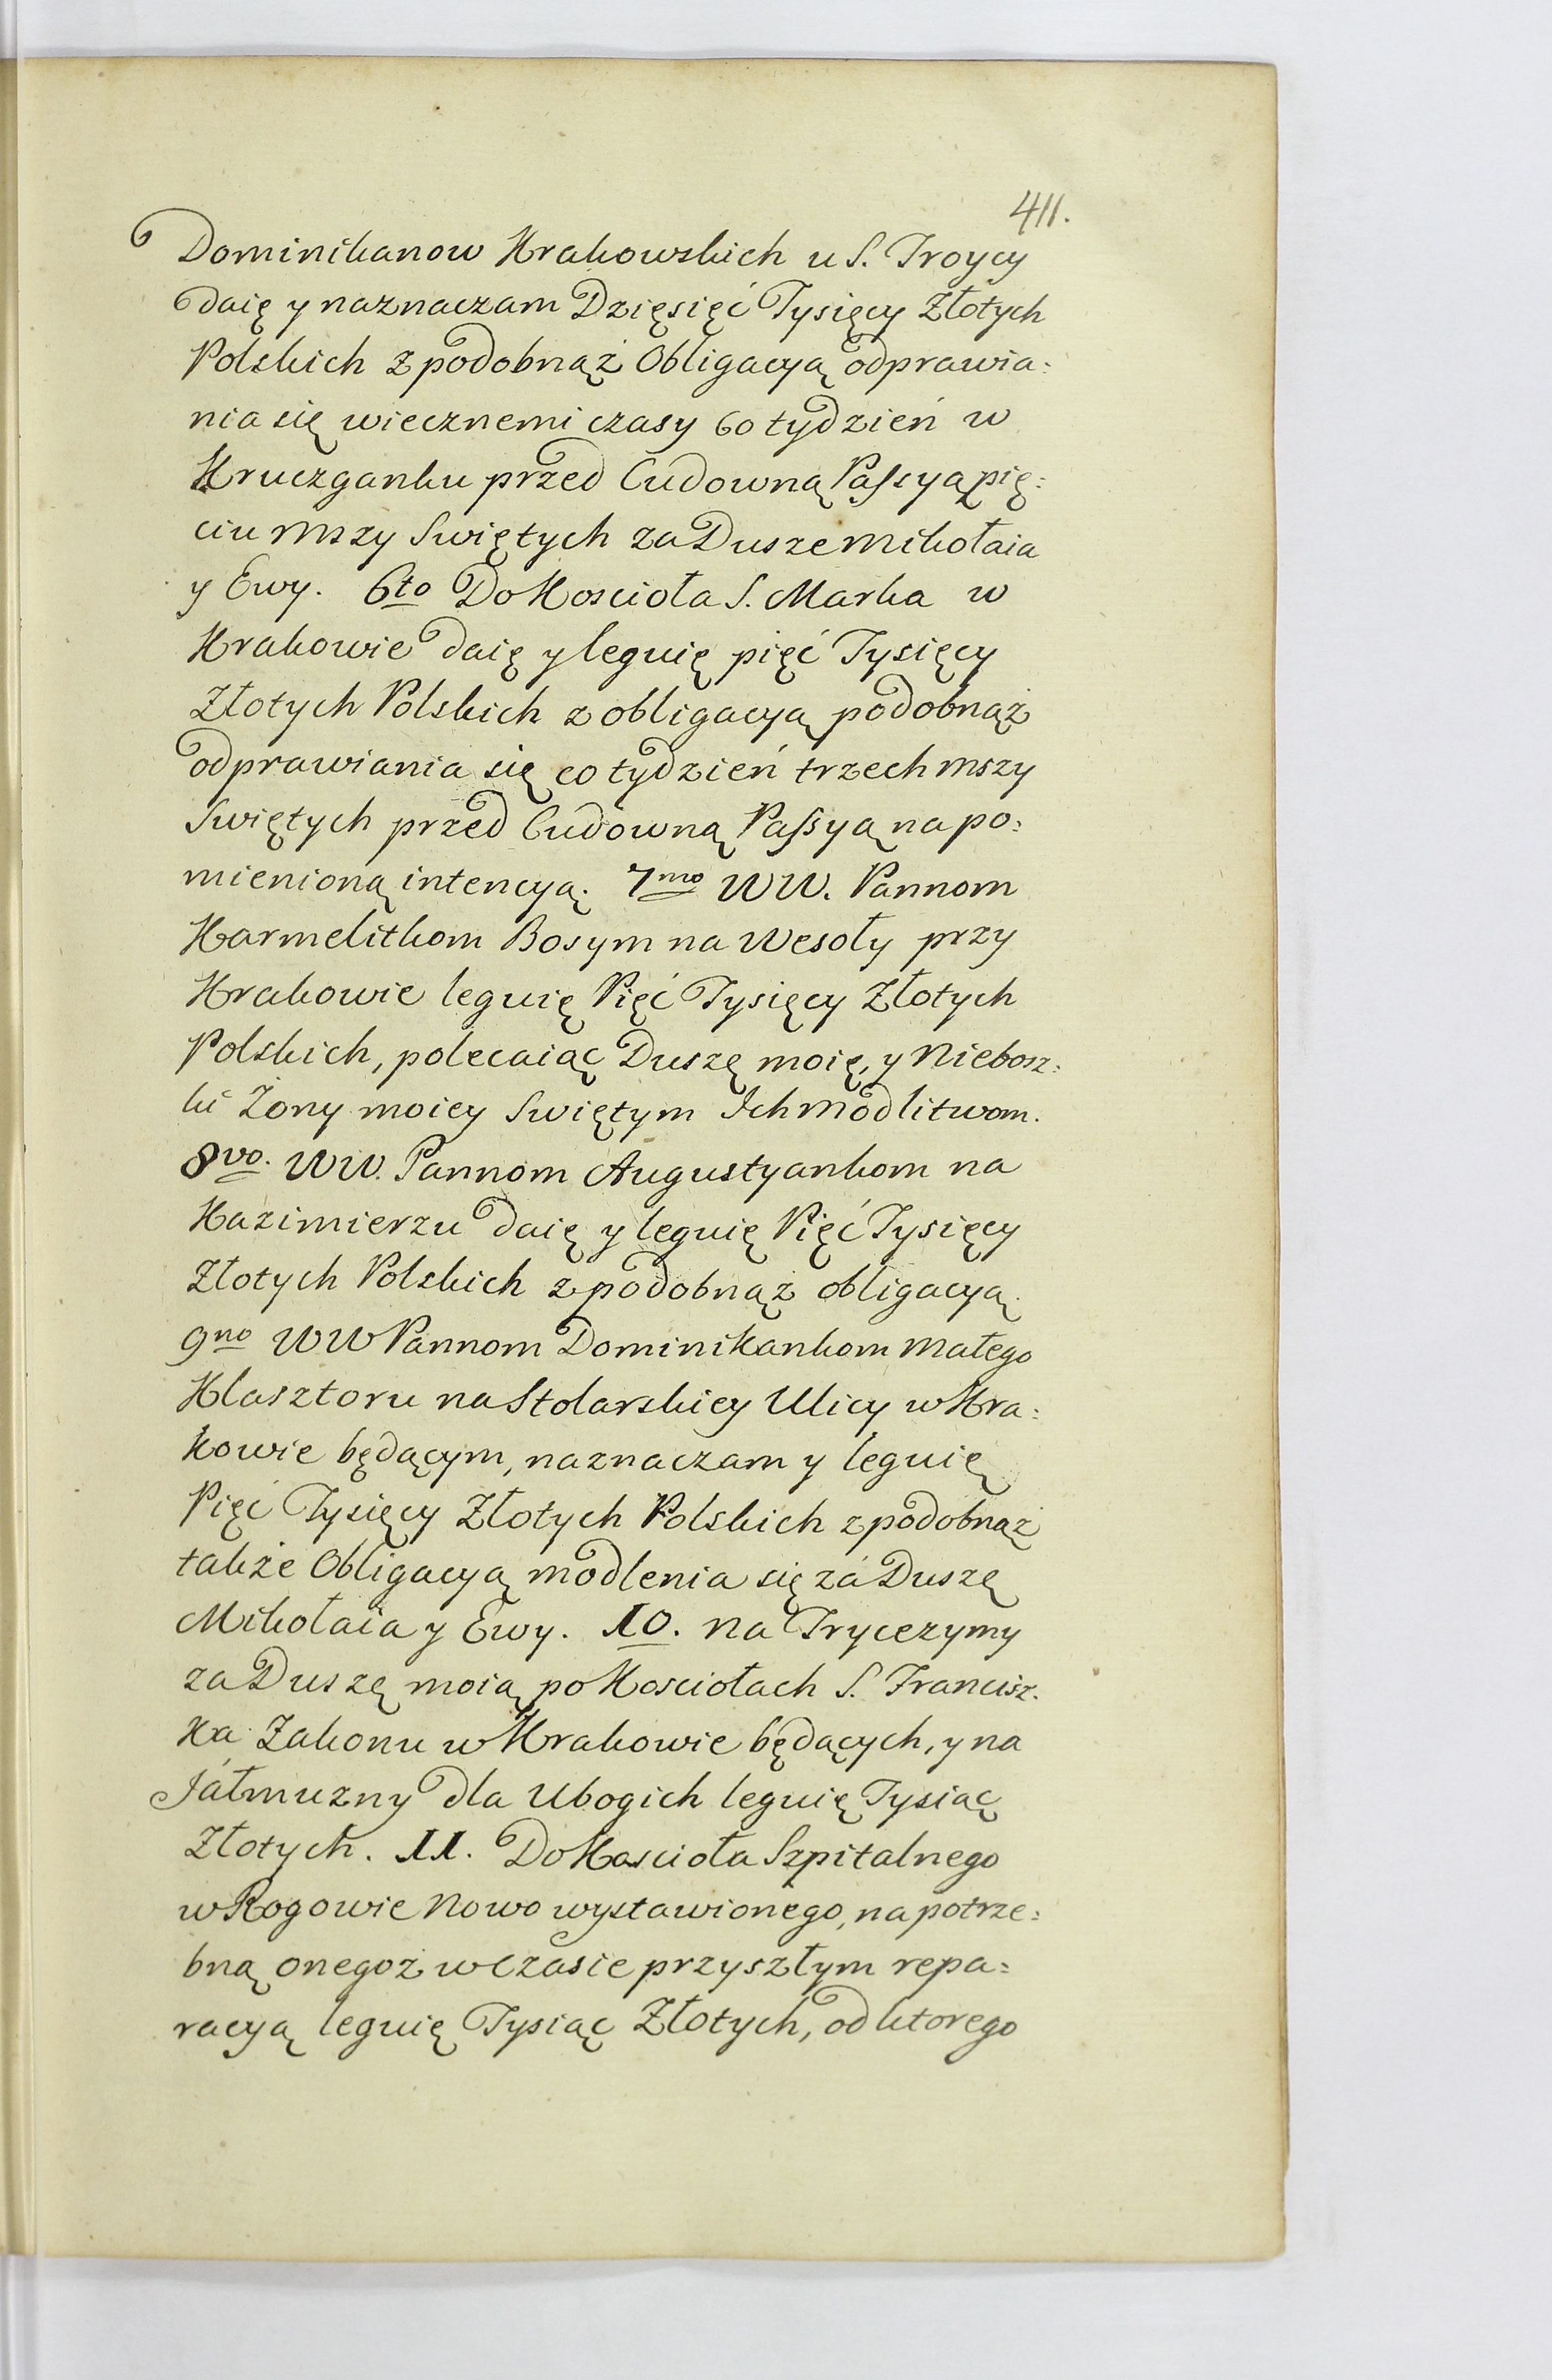 411.
Dominikanow Krakowskich u S. Troycy
daię y naznaczam Dzięsięć Tysięcy Złotych
Polskich z podobnąż Obligacyą odprawia:
nia się wiecznemi czasy co tydzień w
Kruczganku przed Cudowną Passyą pię:
ciu Mszy Swiętych za Dusze Mikołaia
y Ewy. 6to Do Kosciola S. Marka w
Krakowie daię y leguię pięć Tysięcy
Złotych Polskich z obligacyą podobnąż
odprawiania się co tydzień trzech mszy
Swiętych przed Cudowną Passyą na po:
mienioną intencyą. 7mo WW. Pannom
Karmelitkom Bosym na Wesoły przy
Krakowie leguię Pięć Tysięcy Złotych
Polskich, polecaiąc Duszę moię, y Niebosz:
ki Żony moiey Swiętym Ich modlitwom.
8vo. WW. Pannom Augustyankom na
Kazimierzu daię y leguię Pięć Tysięcy
Złotych Polskich z podobnąż obligacyą.
9no WW Pannom Dominikankom Małego
Klasztoru na Stolarskiey Ulicy w Kra:
kowie będącym, naznaczam y leguię
Pięć Tysięcy Złotych Polskich z podobnąż
także Obligacyą modlenia się zá Duszę
Mikołaia y Ewy. 10. na Trycezymy
za Duszę moią po Kosciołach S. Francisz.
ka Zakonu w Krakowie będących, y na
Jáłmuzny dla Ubogich leguię Tysiąc
Złotych. 11. Do Kosciola Szpitalnego
w Rogowie Nowo wystawionego, na potrze:
bną onegoż w czasie przyszłym repa:
racyą leguię Tysiąc Złotych, od ktorego